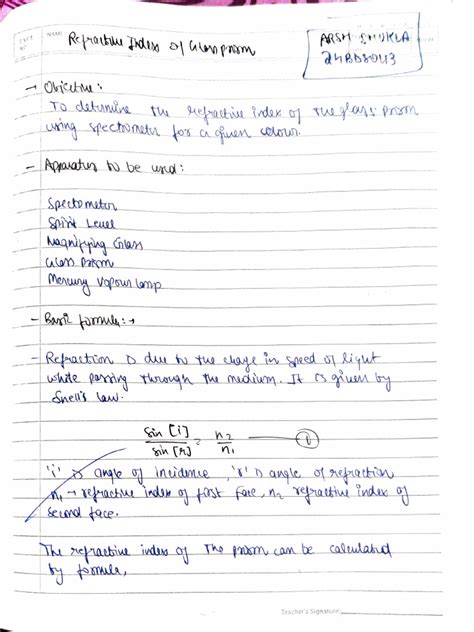 EXPT. NO.
NAME
Refractive Index of Glass prism
ARSH SHUKLA
24BDS0
→ Objective:
To determine the refractive index of the glass prism
using spectometer for a given colour.
- Apparatus to be used:
Spectometer
Spirit Level
Magnifying Glass
Glass Prism
Mercury Vapour lamp
- Basic formula: →
- Refraction is due to the change in speed of light
while passing through the medium. It is given by
Snell's law.
sin [i] / sin [r] = n2 / n1 — 1
'i' is angle of incidence, 'r' is angle of refraction
n1 → refractive index of first face, n2 refractive index of
second face.
The refractive index of the prism can be calculated
by formula,
Teacher's Signature: